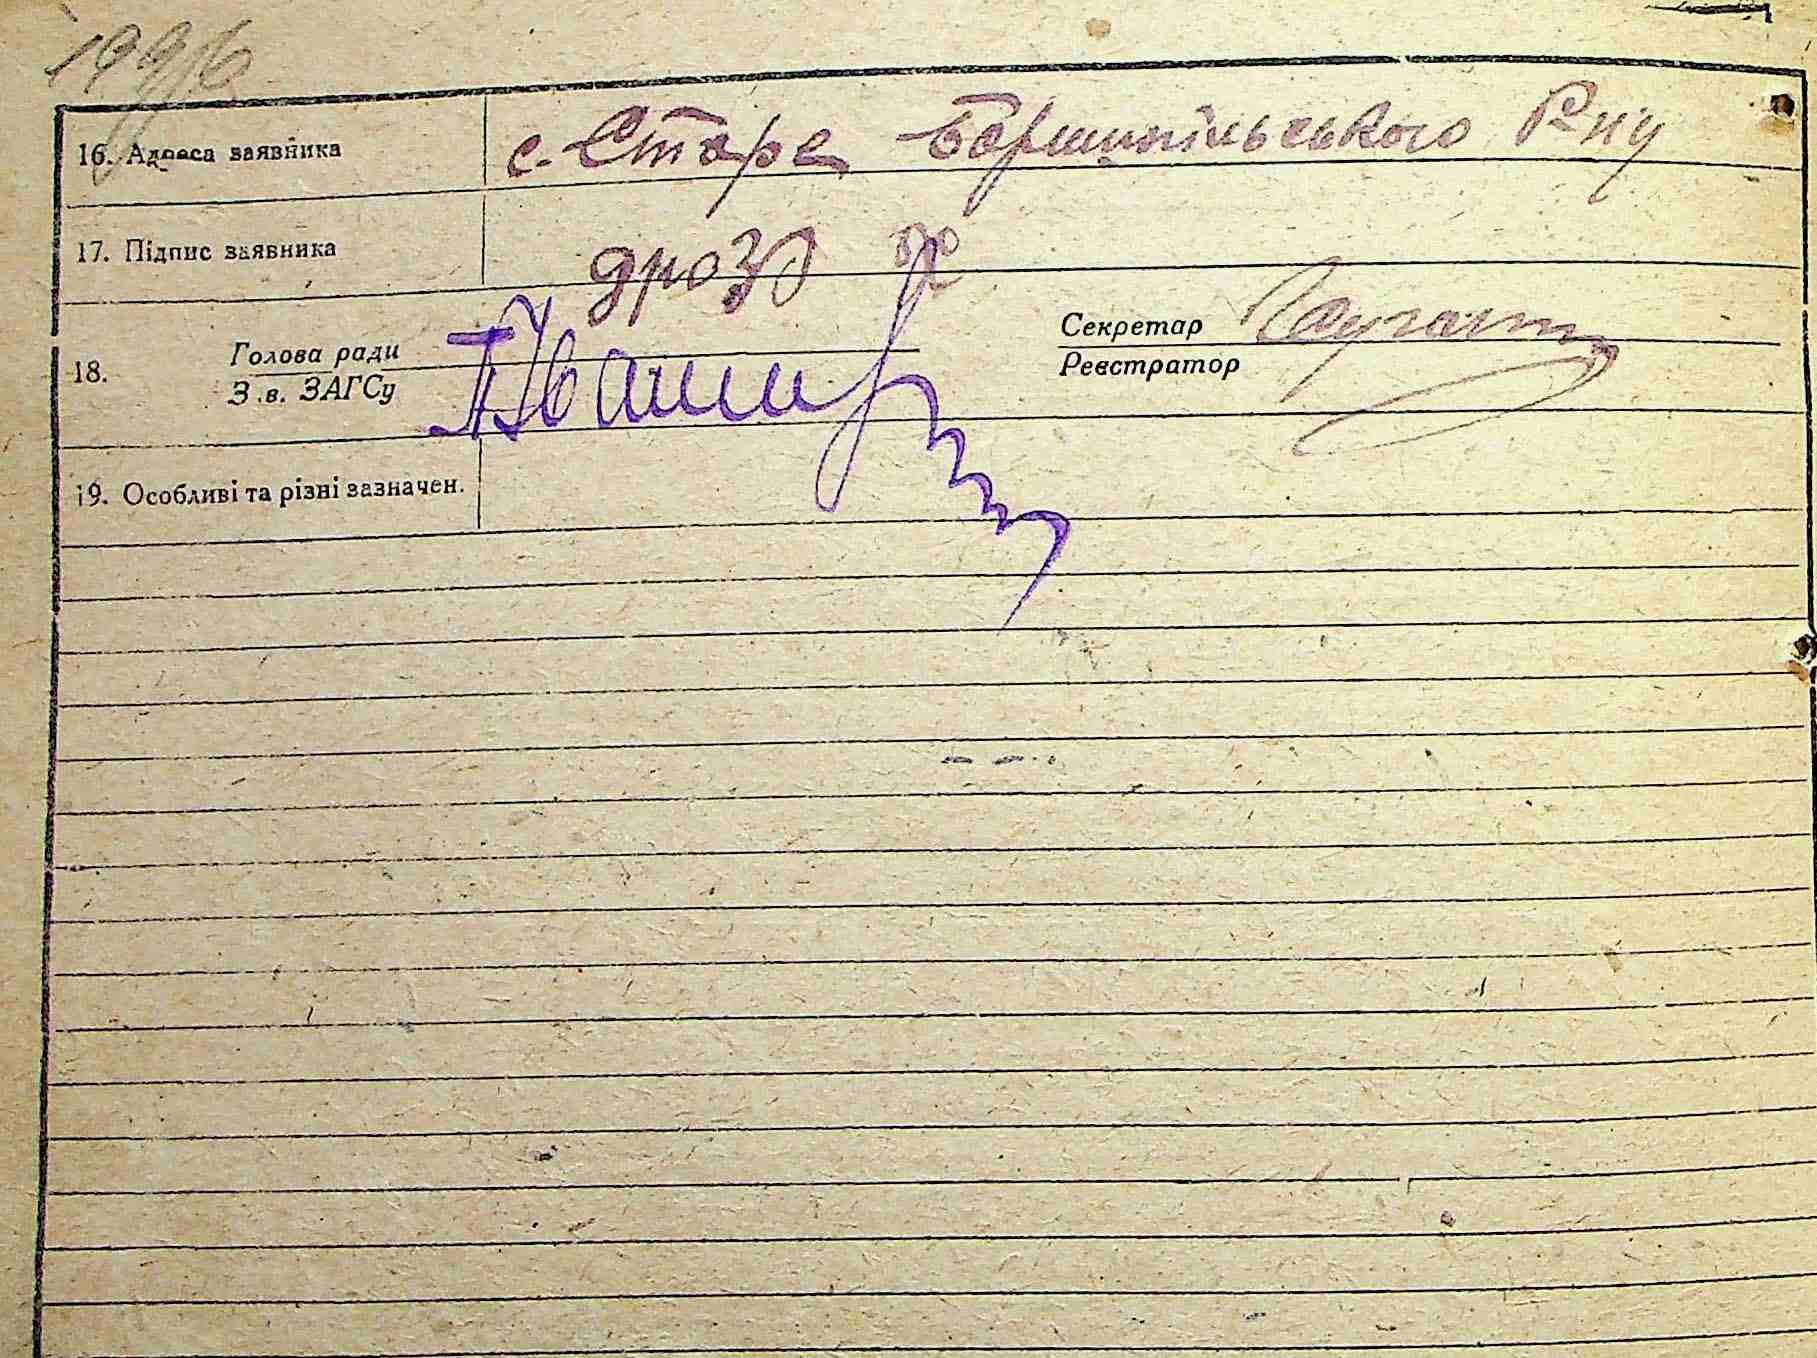 16. Адреса заявника с. Старе Бориспільського Р-ну
17. Підпис заявника Дрозд
18. Голова ради
З.в. ЗАГСу
Секретар
Реєстратор
19. Особливі та різні зазначен.